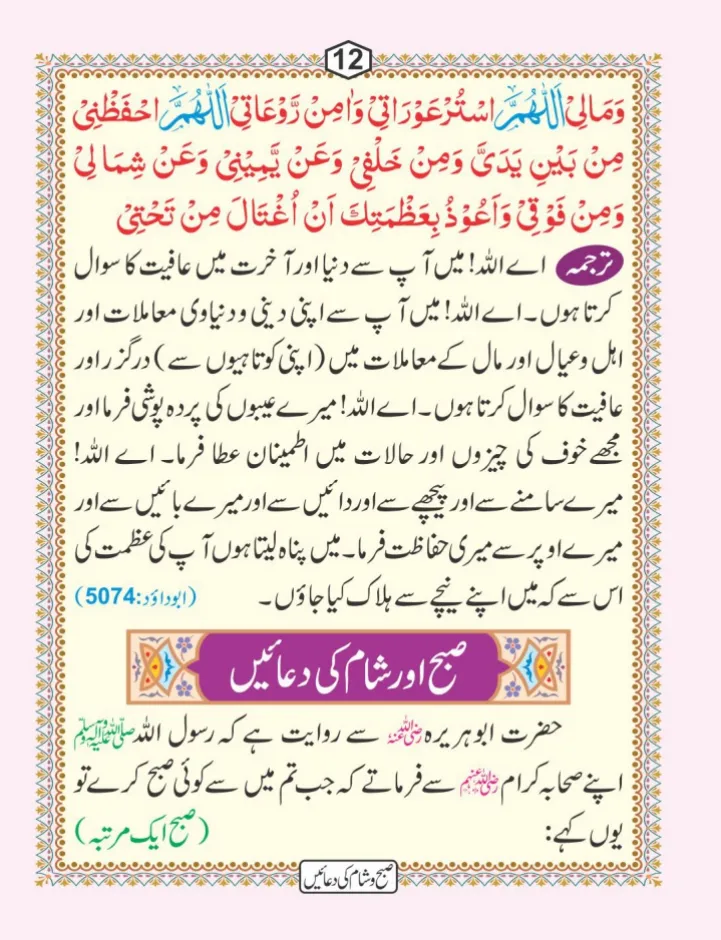 12
وَمَالِیْ اَللّٰهُمَّ اسْتُرْ عَوْرَاتِیْ وَاٰمِنْ رَّوْعَاتِیْ اَللّٰهُمَّ احْفَظْنِیْ
مِنْ بَیْنِ یَدَیَّ وَمِنْ خَلْفِیْ وَعَنْ یَّمِیْنِیْ وَعَنْ شِمَالِیْ
وَمِنْ فَوْقِیْ وَاَعُوْذُ بِعَظَمَتِكَ اَنْ اُغْتَالَ مِنْ تَحْتِیْ
ترجمہ اے اللہ! میں آپ سے دنیا اور آخرت میں عافیت کا سوال
کرتا ہوں۔ اے اللہ! میں آپ سے اپنی دینی و دنیاوی معاملات اور
اہل وعیال اور مال کے معاملات میں (اپنی کوتاہیوں سے) درگزر اور
عافیت کا سوال کرتا ہوں۔ اے اللہ! میرے عیبوں کی پردہ پوشی فرما اور
مجھے خوف کی چیزوں اور حالات میں اطمینان عطا فرما۔ اے اللہ!
میرے سامنے سے اور پیچھے سے اور دائیں سے اور میرے بائیں سے اور
میرے اوپر سے میری حفاظت فرما۔ میں پناہ لیتا ہوں آپ کی عظمت کی
اس سے کہ میں اپنے نیچے سے ہلاک کیا جاؤں۔ (ابوداؤد:5074)
صبح اور شام کی دعائیں
حضرت ابوہریرہ رضی اللہ عنہ سے روایت ہے کہ رسول اللہ صلی اللہ علیہ وآلہ وسلم
اپنے صحابہ کرام رضی اللہ عنہم سے فرماتے کہ جب تم میں سے کوئی صبح کرے تو
یوں کہے: (صبح ایک مرتبہ)
صبح و شام کی دعائیں